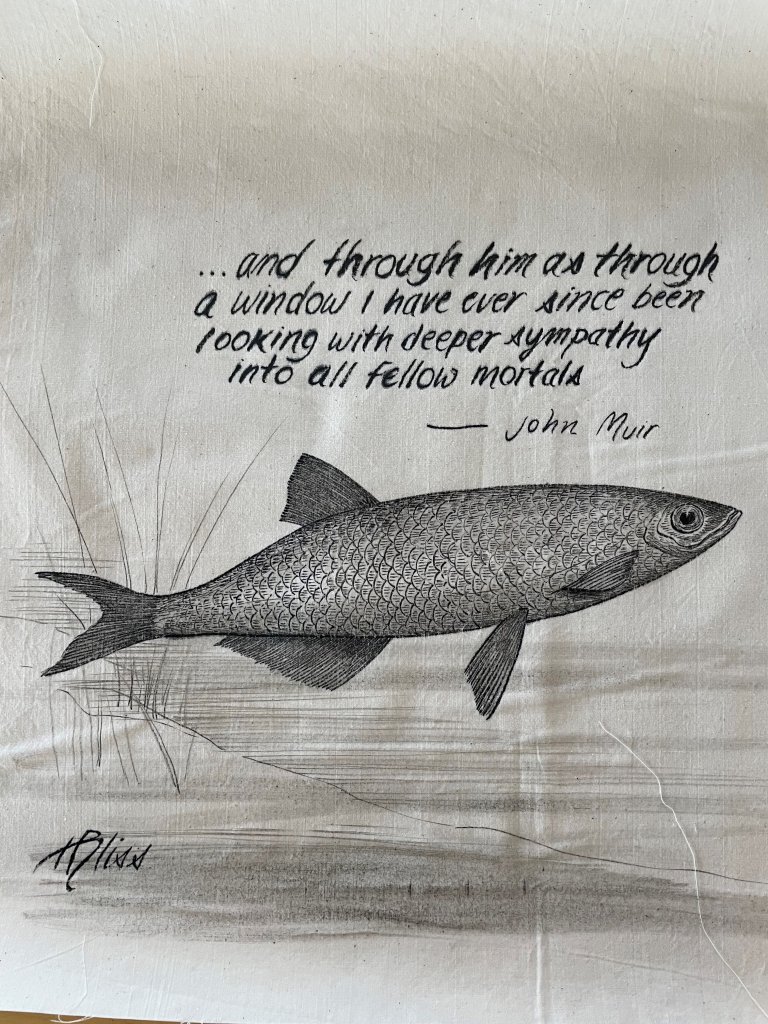 ...and through him as through
a window I have ever since been
looking with deeper sympathy
into all fellow mortals
— John Muir
HBliss